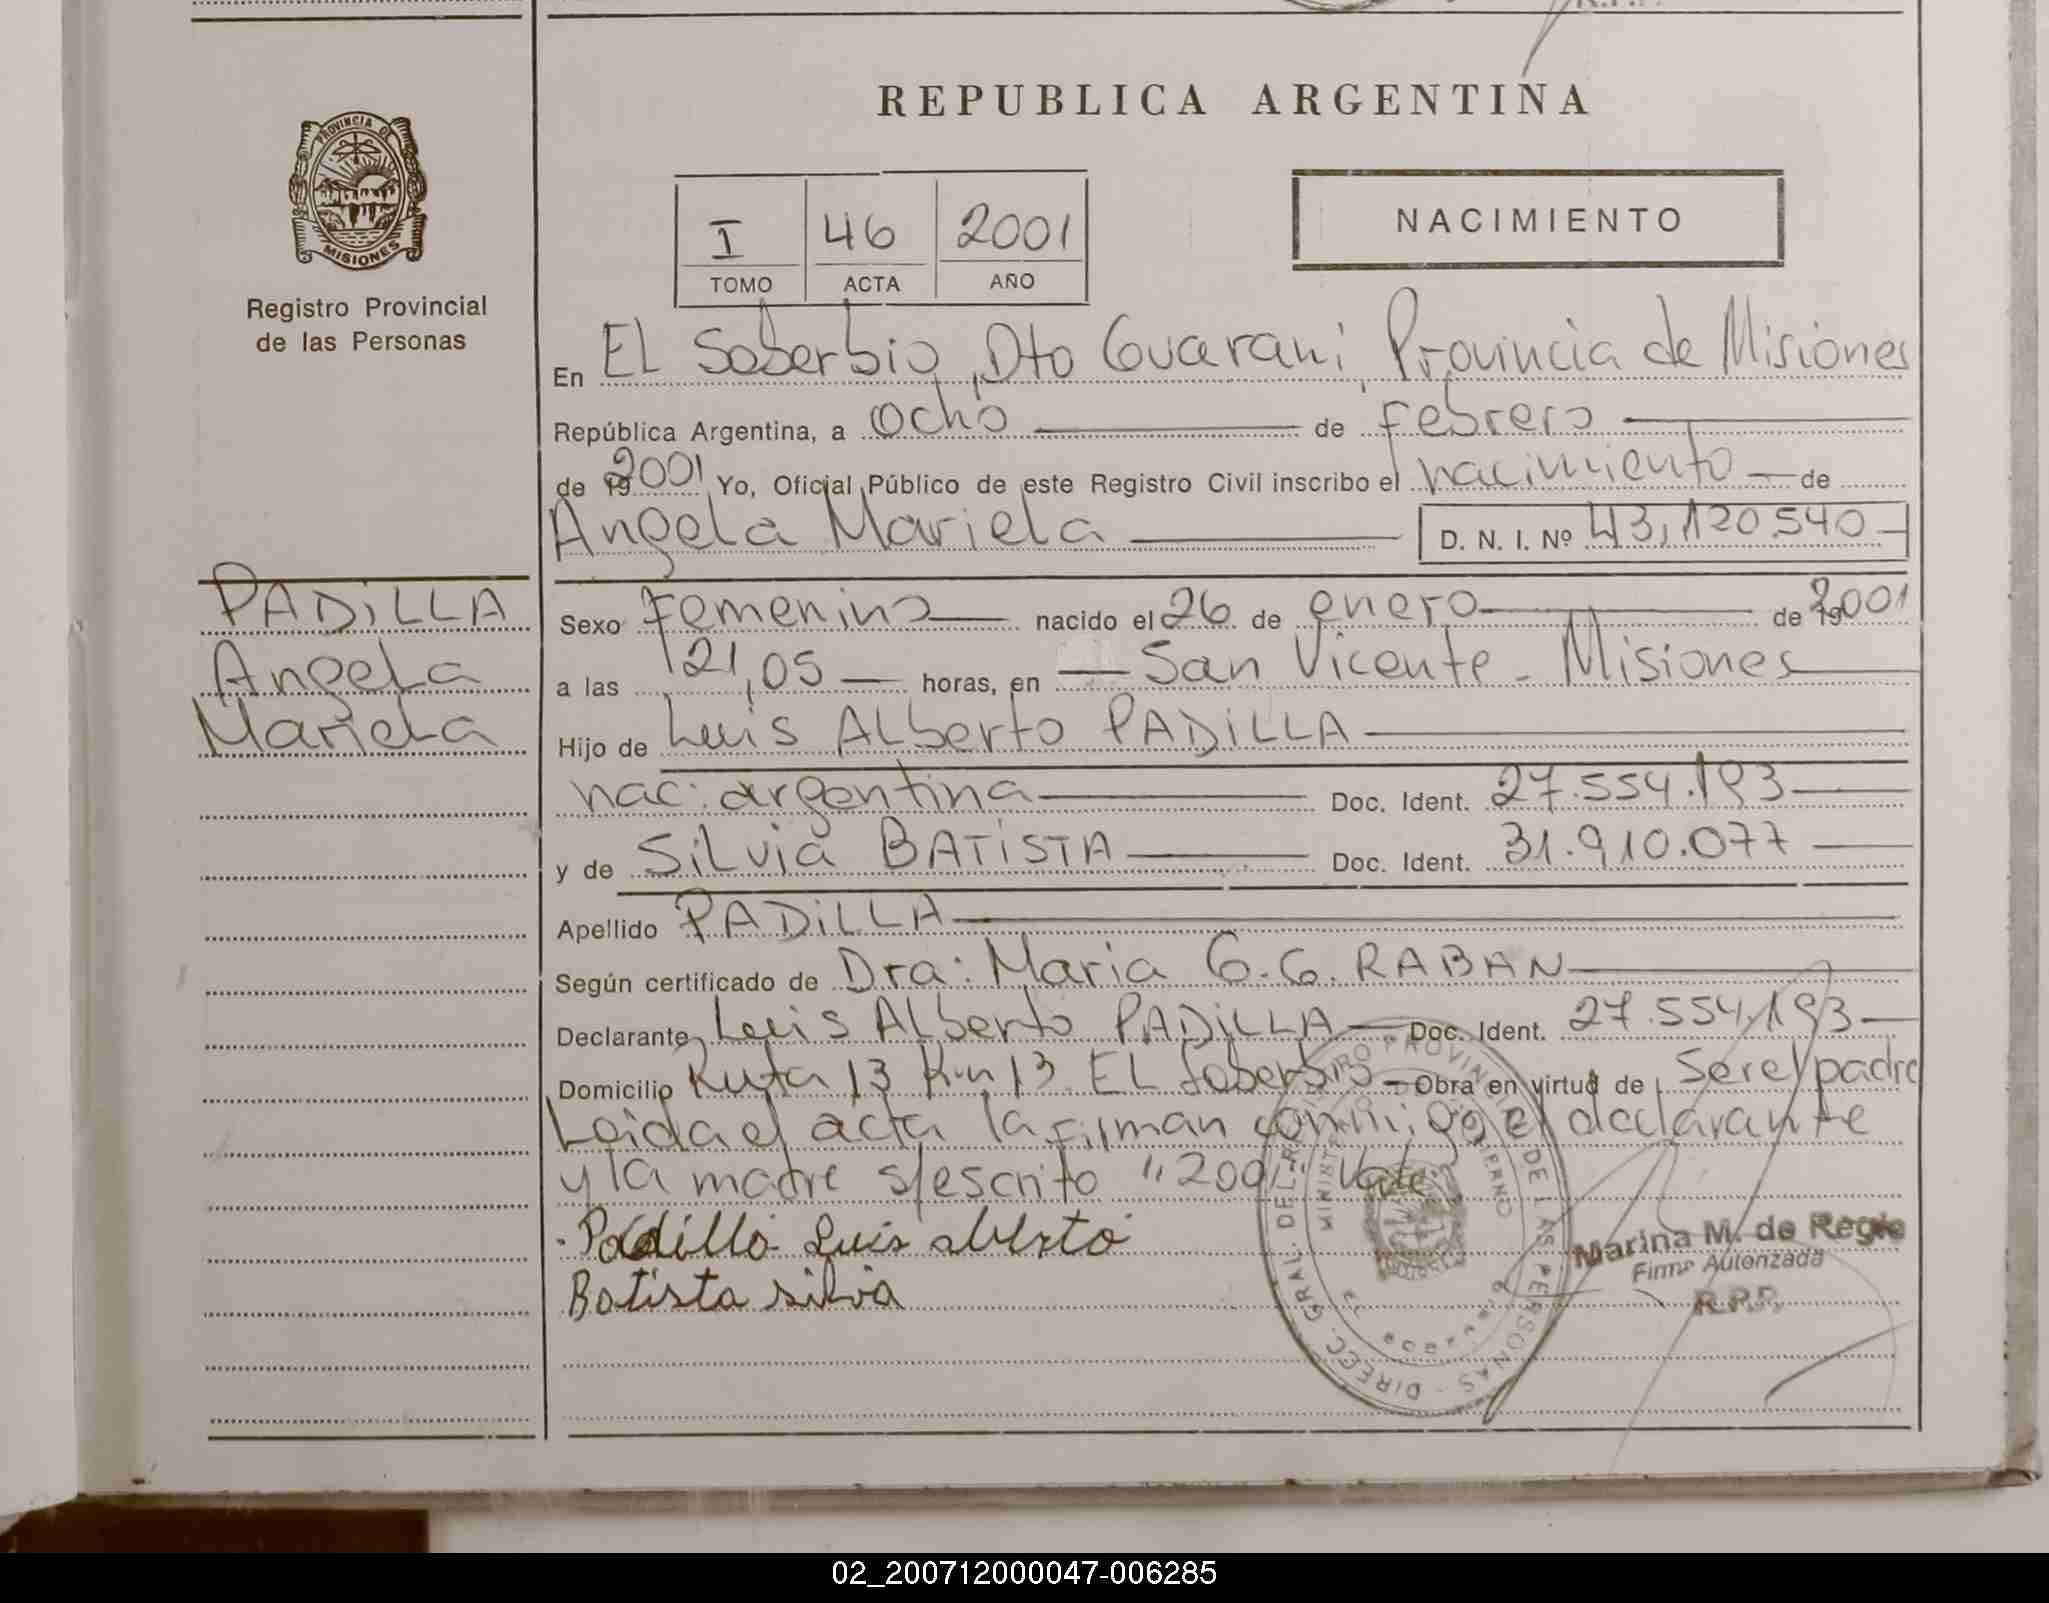 REPUBLICA ARGENTINA
PROVINCIA DE
MISIONES
Registro Provincial
de las Personas
I 46 2001
TOMO ACTA AÑO
NACIMIENTO
En EL Soberbio, Dto Guarani, Provincia de Misiones
República Argentina, a ocho de febrero
de 19 2001 Yo, Oficial Público de este Registro Civil inscribo el nacimiento de
Angela Mariela D. N. I. Nº 43,120.540
PADILLA
Angela
Mariela
Sexo Femenino nacido el 26 de enero de 19 2001
a las 21,05 horas, en San Vicente - Misiones
Hijo de Luis ALberto PADiLLA
nac: argentina Doc. Ident. 27.554.193
y de SiLvia BATiSTA Doc. Ident. 31.910.077
Apellido PADiLLA
Según certificado de Dra: Maria G.G. RABAN
Declarante Luis ALberto PADiLLA Doc. Ident. 27.554.193
Domicilio Ruta 13 Km 13 EL Soberbio Obra en virtud de Ser el padre
Leida el acta la firman conmigo el declarante
y la madre s/escrito "2001" Vale.
Padilla Luis alberto
Batista silvia
DIREC. GRAL. DEL REGISTRO PROVINCIAL DE LAS PERSONAS
Marina M. de Regie
Firma Autorizada
R.P.P.
02_200712000047-006285